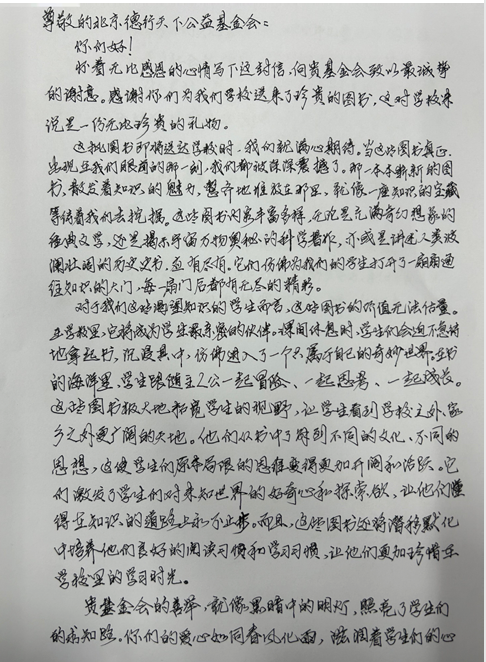 尊敬的北京德行天下公益基金会:
你们好!
怀着无比感恩的心情写下这封信,向贵基金会致以最诚挚
的谢意。感谢你们为我们学校送来了珍贵的图书,这对学校来
说是一份无比珍贵的礼物。
这批图书即将送达学校时,我们就满心期待。当这些图书真正
出现在我们眼前的那一刻,我们都被深深震撼了。那一本本崭新的图
书,散发着知识的魅力,整齐地堆放在那里,就像一座知识的宝藏
等待着我们去挖掘。这些图书内容丰富多样,无论是充满奇幻想象的
经典文学,还是揭示宇宙万物奥秘的科学著作,亦或是讲述人类波
澜壮阔的历史史书,应有尽有。它们仿佛为我们的学生打开了一扇扇通
往知识的大门,每一扇门后都有无尽的精彩。
对于我们这些渴望知识的学生而言,这些图书的价值无法估量。
在学校里,它将成为学生最亲密的伙伴。课间休息时,学生们会迫不及待
地拿起书,沉浸其中,仿佛进入了一个只属于自己的奇妙世界。在书
的海洋里,学生跟随主人公一起冒险、一起思考、一起成长。
这些图书极大地拓宽学生的视野,让学生看到学校之外、家
乡之外更广阔的天地。他们从书中了解到不同的文化、不同的
思想,这使学生们原本局限的思维变得更加开阔和活跃。它
们激发了学生们对未知世界的好奇心和探索欲,让他们懂
得在知识的道路上永不止步。而且,这些图书还将潜移默化
中培养他们良好的阅读习惯和学习习惯,让他们更加珍惜在
学校里的学习时光。
贵基金会的善举,就像黑暗中的明灯,照亮了学生们
的求知路。你们的爱心如同春风化雨,滋润着学生们的心